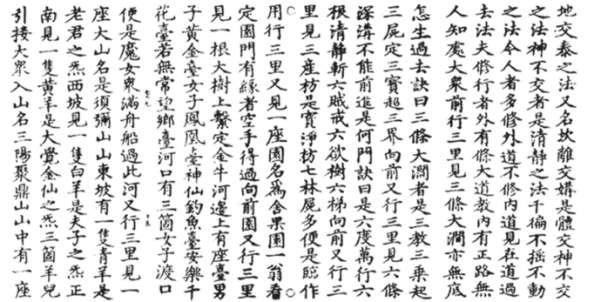 地交泰之法又名坎離交媾是體交神不交
之法神不交者是清静之法千徧不揺不動
之法令人者多修外道不修内道見在道過
去法夫修行者外有條大道教内有正路無
人知處大衆前行三里見三條大澗亦無底
怎生過去訣曰三條大澗者是三教三乗起
三屍定三寳超三界向前又行三里見六條
深溝不能前進是何門訣曰是六度萬行六
根清静斬六賊戒六欲樹六梯向前又行三
里見三座枋是寳淨枋七林屍多便是臨作
用行三里又見一座園名爲舍果園一翁看
定園門有緣者空手得過向前園又行三里
見一根大樹上繫定金牛河邊上有座臺男
子黄金臺女子鳳凰臺神仙釣魚臺安樂千
花臺若無常迎鄉臺河口有三箇女子渡口
便是魔女衆満舟船過此河又行三里見一
座大山名是須彌山山東坡有一隻青羊是
老君之炁西坡見一隻白羊是夫子之炁正
南見一隻黄羊是大覺金仙之炁三箇羊兒
引接大衆入山名三陽聚鼎山山中有一座